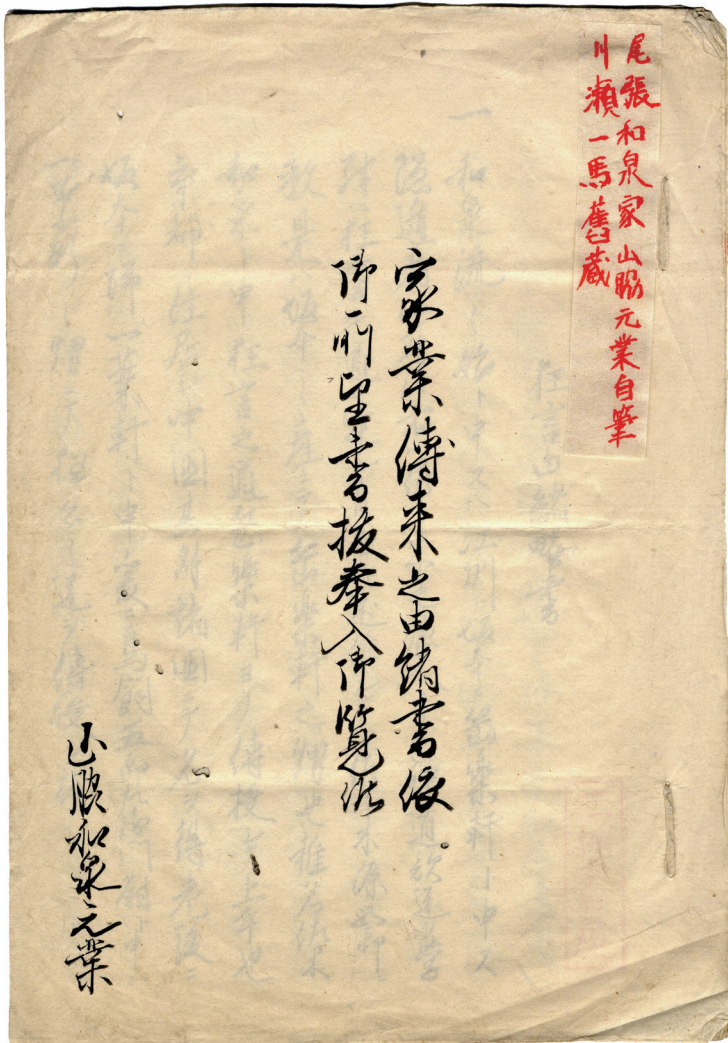 尾張和泉家山脇元業自筆
川瀬一馬舊蔵
家業傳来之由緒書依
御所望書抜奉入御覧候
山脇和泉元業